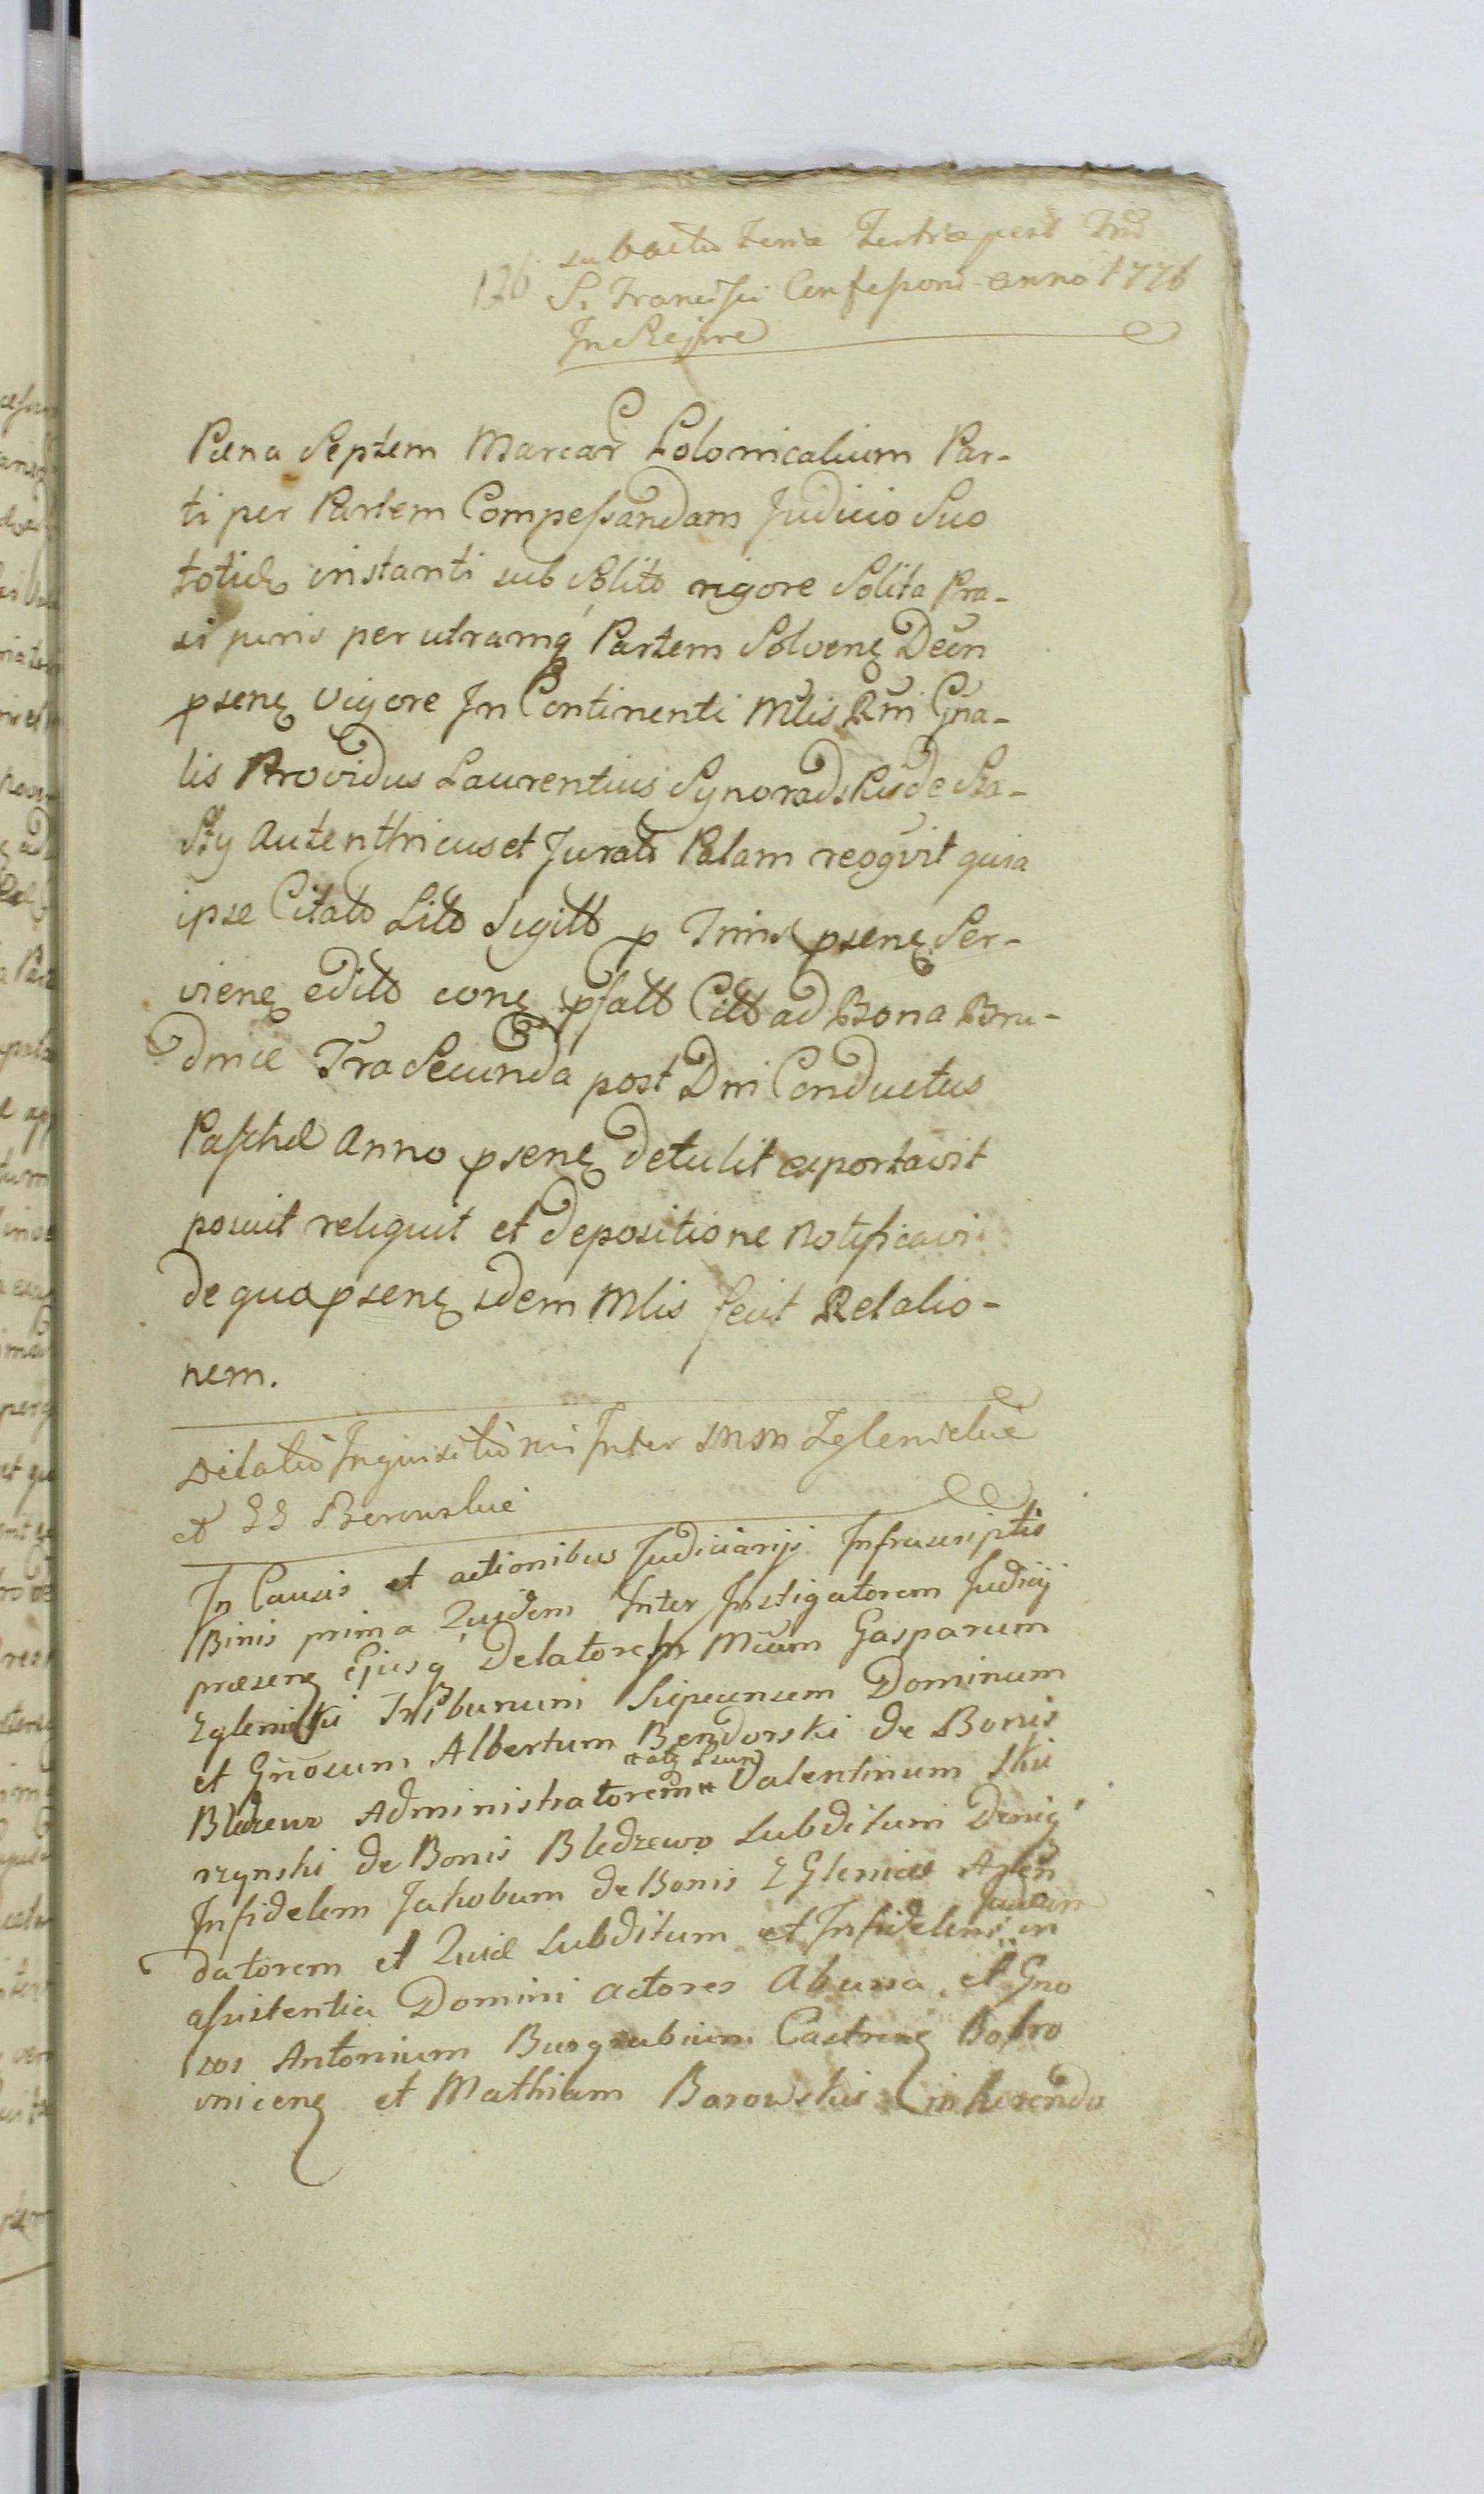 subactus Feria Tertia post Fm
126 S. Francisci Confessoris anno 1776
In Rejpne
Pena Septem Marcar Polonicalium Par-
ti per Partem Compessandam Judicio Suo
totide instanti sub solito rigore Solita Pra-
xi juris per utramq Partem Solvenę Deen
psenę vigore In Continenti Mlis Rni Gna-
lis Providus Laurentius Synoradzki de Sza-
Sty Autenthricus et Jurats Palam recogvit quia
ipse Citatō Litō Sigitō p Imis psenę Ser-
vienę editō conę psatō Citō ad Bona Bru-
dnice Fra Secunda post Dni Conductus
Paschæ Anno psenę detulit aportavit
posuit reliquit et depositione Notificavi
de qua psenę idem Mlis fecit Relatio-
nem.
Dilatio Inquisitionis Inter MM Zglenickie
et GG Borowskie
In Causis et actionibus Judiciarijs Infrascriptis
Binis prima Quidem Inter Instigatorem Judicij
præsenę Ejusq Delatorem Mcum Gasparum
Zglenicki Tribunum Sicpecensem Dominum
et Gnosum Albertum Bendorski de Bonis
ratę Lsun
Bledzewo Administratorem Valentinum Sku
rzynski de Bonis Bledzewo Subditum Deniq
Infidelem Jakobum de Bonis Zglenice Aren
Judæum
datorem et Quæ Subditum et Infidelem in
assistentia Domini Actores Abuna et Gno
sos Antonium Burgrabium Castrenę Bobro
vnicenę et Mathiam Borowskie inhærendo